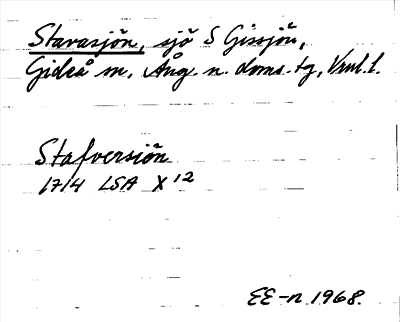 Stavasjön, sjö S Gissjön,
Gideå sn, Ång n. doms.tg, Vnul.l.
Stafversiön
1714 LSA X 12
EE-n 1968.